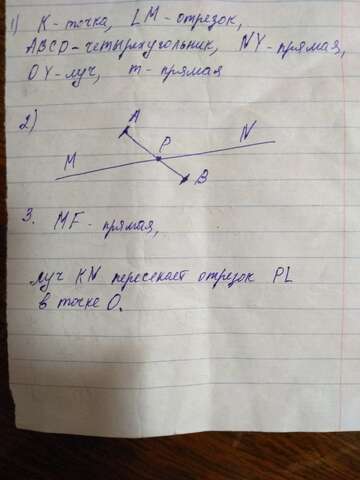 1) К - точка, LM - отрезок,
ABCD - четырехугольник, NY - прямая,
OY - луч, m - прямая
2)
A
N
P
M
B
3. MF - прямая,
луч KN пересекает отрезок PL
в точке O.